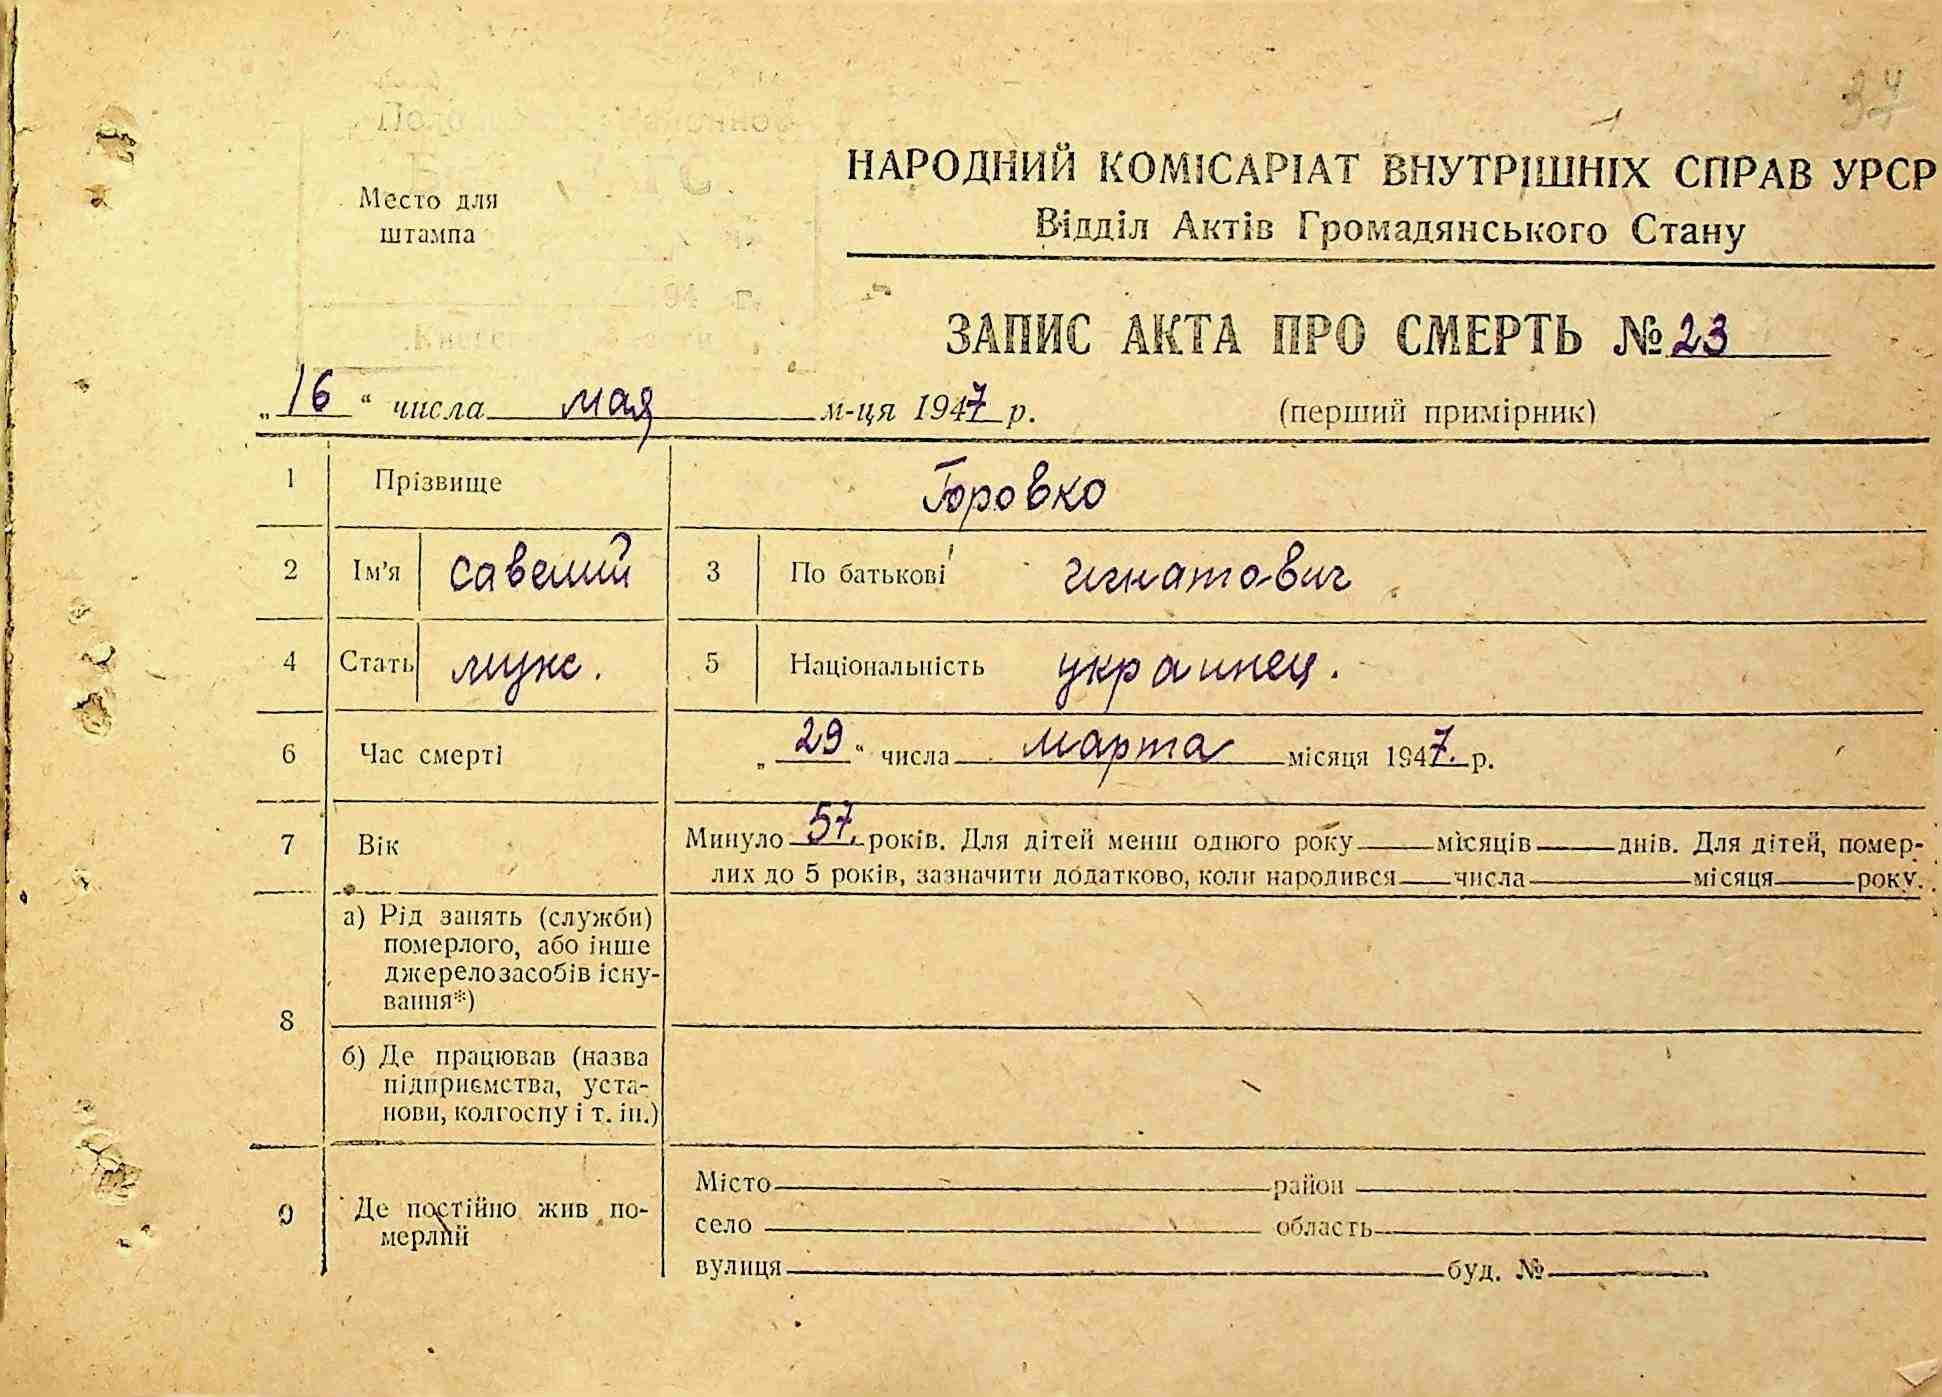 НАРОДНИЙ КОМІСАРІАТ ВНУТРІШНІХ СПРАВ УРСР
Відділ Актів Громадянського Стану
Место для
штампа
ЗАПИС АКТА ПРО СМЕРТЬ № 23
„16“ числа мая м-ця 1947 р. (перший примірник)
1 Прізвище Горовко
2 Ім'я савелий 3 По батькові игнатович
4 Стать муж. 5 Національність украинец.
6 Час смерті „29“ числа марта місяця 1947. р.
7 Вік Минуло 57. років. Для дітей менш одного року місяців днів. Для дітей, помер-
лих до 5 років, зазначити додатково, коли народився числа місяця року.
8 а) Рід занять (служби)
померлого, або інше
джерело засобів існу-
вання*)
б) Де працював (назва
підприємства, уста-
нови, колгоспу і т. ін.)
9 Де постійно жив по-
мерлий
Місто район
село область
вулиця буд. №